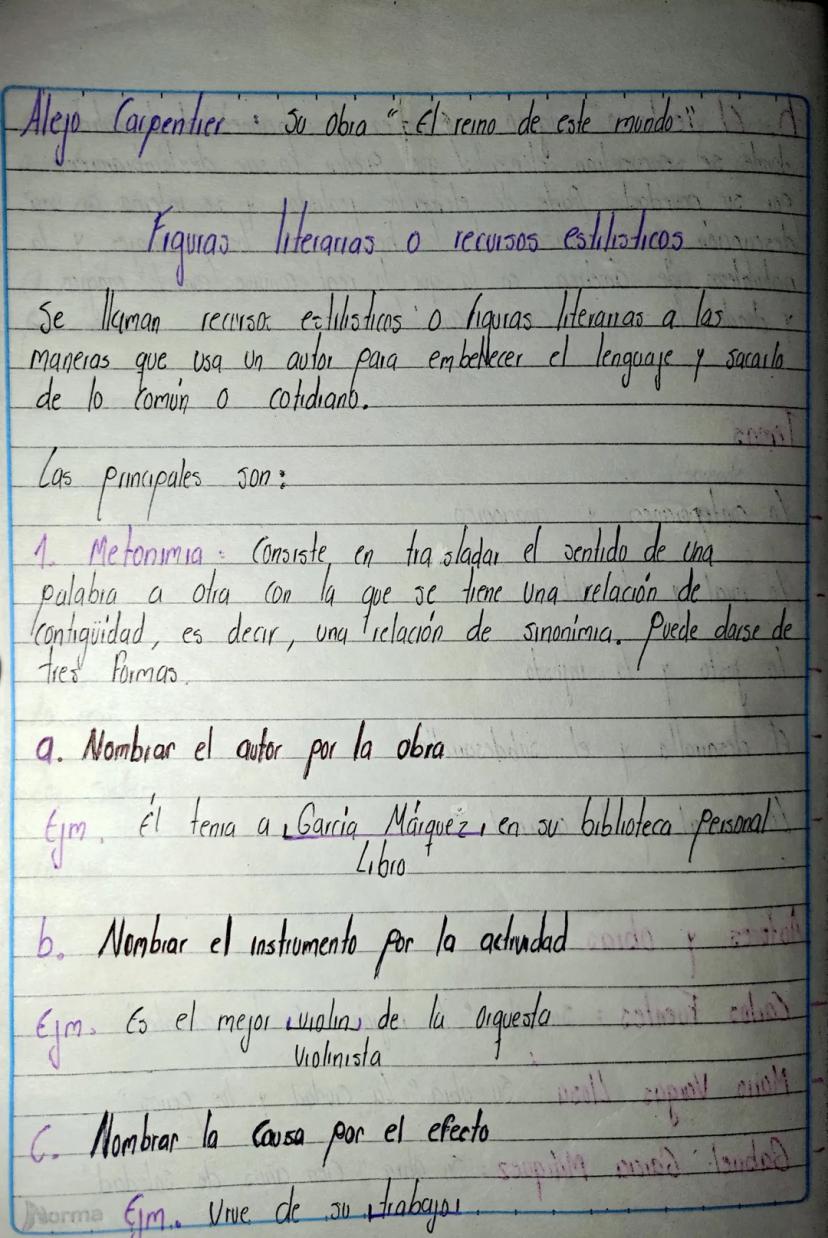 Alejo Carpentier: Su obra "El reino de este mundo"
Figuras literarias o recursos estilísticos
Se llaman recursos estilísticos o figuras literarias a las
maneras que usa un autor para embellecer el lenguaje y sacarlo
de lo común o cotidiano.
Las principales son:
1. Metonimia: Consiste en trasladar el sentido de una
palabra a otra con la que se tiene una relación de
contigüidad, es decir, una relación de sinonimia. Puede darse de
tres formas.
a. Nombrar el autor por la obra
Ejm. él tenia a García Márquez, en su biblioteca personal
Libro
b. Nombrar el instrumento por la actividad
Ejm. Es el mejor violin, de la orquesta
Violinista
C. Nombrar la causa por el efecto
Norma Ejm. Vive de su trabajo